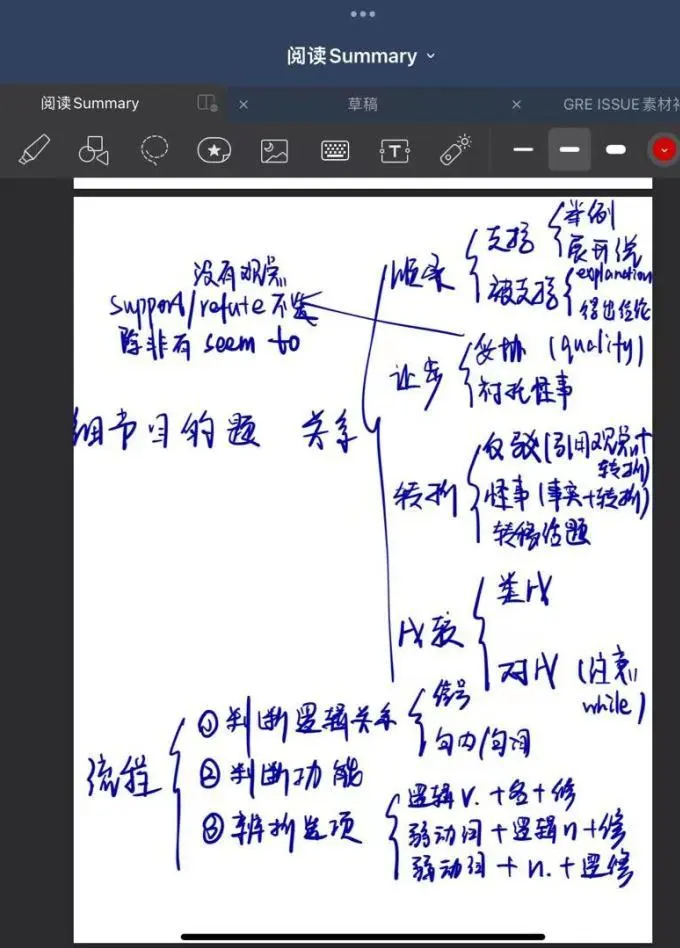 阅读Summary
阅读Summary
草稿
GRE ISSUE素材补
T
没有观点
support/refute不选
除非有 seem to
细节目的题 关系
顺承
支持
举例
展开说
被支持
explanation
得出结论
让步
妥协 (quality)
衬托怪事
转折
反驳(引用观点+
转折)
怪事(事实+转折)
转移话题
比较
类比
对比 (注意
while)
流程
①判断逻辑关系
信号
句内/句间
②判断功能
③辨析选项
逻辑v.+名+修
弱动词+逻辑n+修
弱动词+n.+逻修